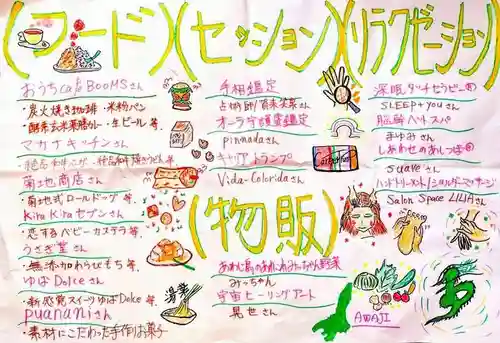 (フード)
おうちcafe BOOMSさん
・炭火焼き珈琲・米粉パン
・酵素玄米薬膳カレー・生ビール 等
マカナキッチンさん
菊地商店さん
・菊地式ロールドッグ 等
Kira Kiraセブンさん
・恋するベビーカステラ 等
うさぎ堂さん
・無添加わらびもち 等
ゆばDolceさん
・新感覚スイーツゆばDolce 等
puananiさん
・素材にこだわった手作りお菓子
湯葉
(セッション)
手相鑑定
オーラ守護霊鑑定
pinnadaさん
キャリアトランプ
Vida-Coloridaさん
(物販)
みっちゃん
宇宙ヒーリングアート
晃世さん
AWAJI
(リラクゼーション)
深眠タッチセラピー
SLEEP+youさん
脳解ヘッドスパ
まゆみさん
しあわせのあしつぼ
suaveさん
ハンドトリートメント/ショルダーマッサージ
Salon Space LILIAさん